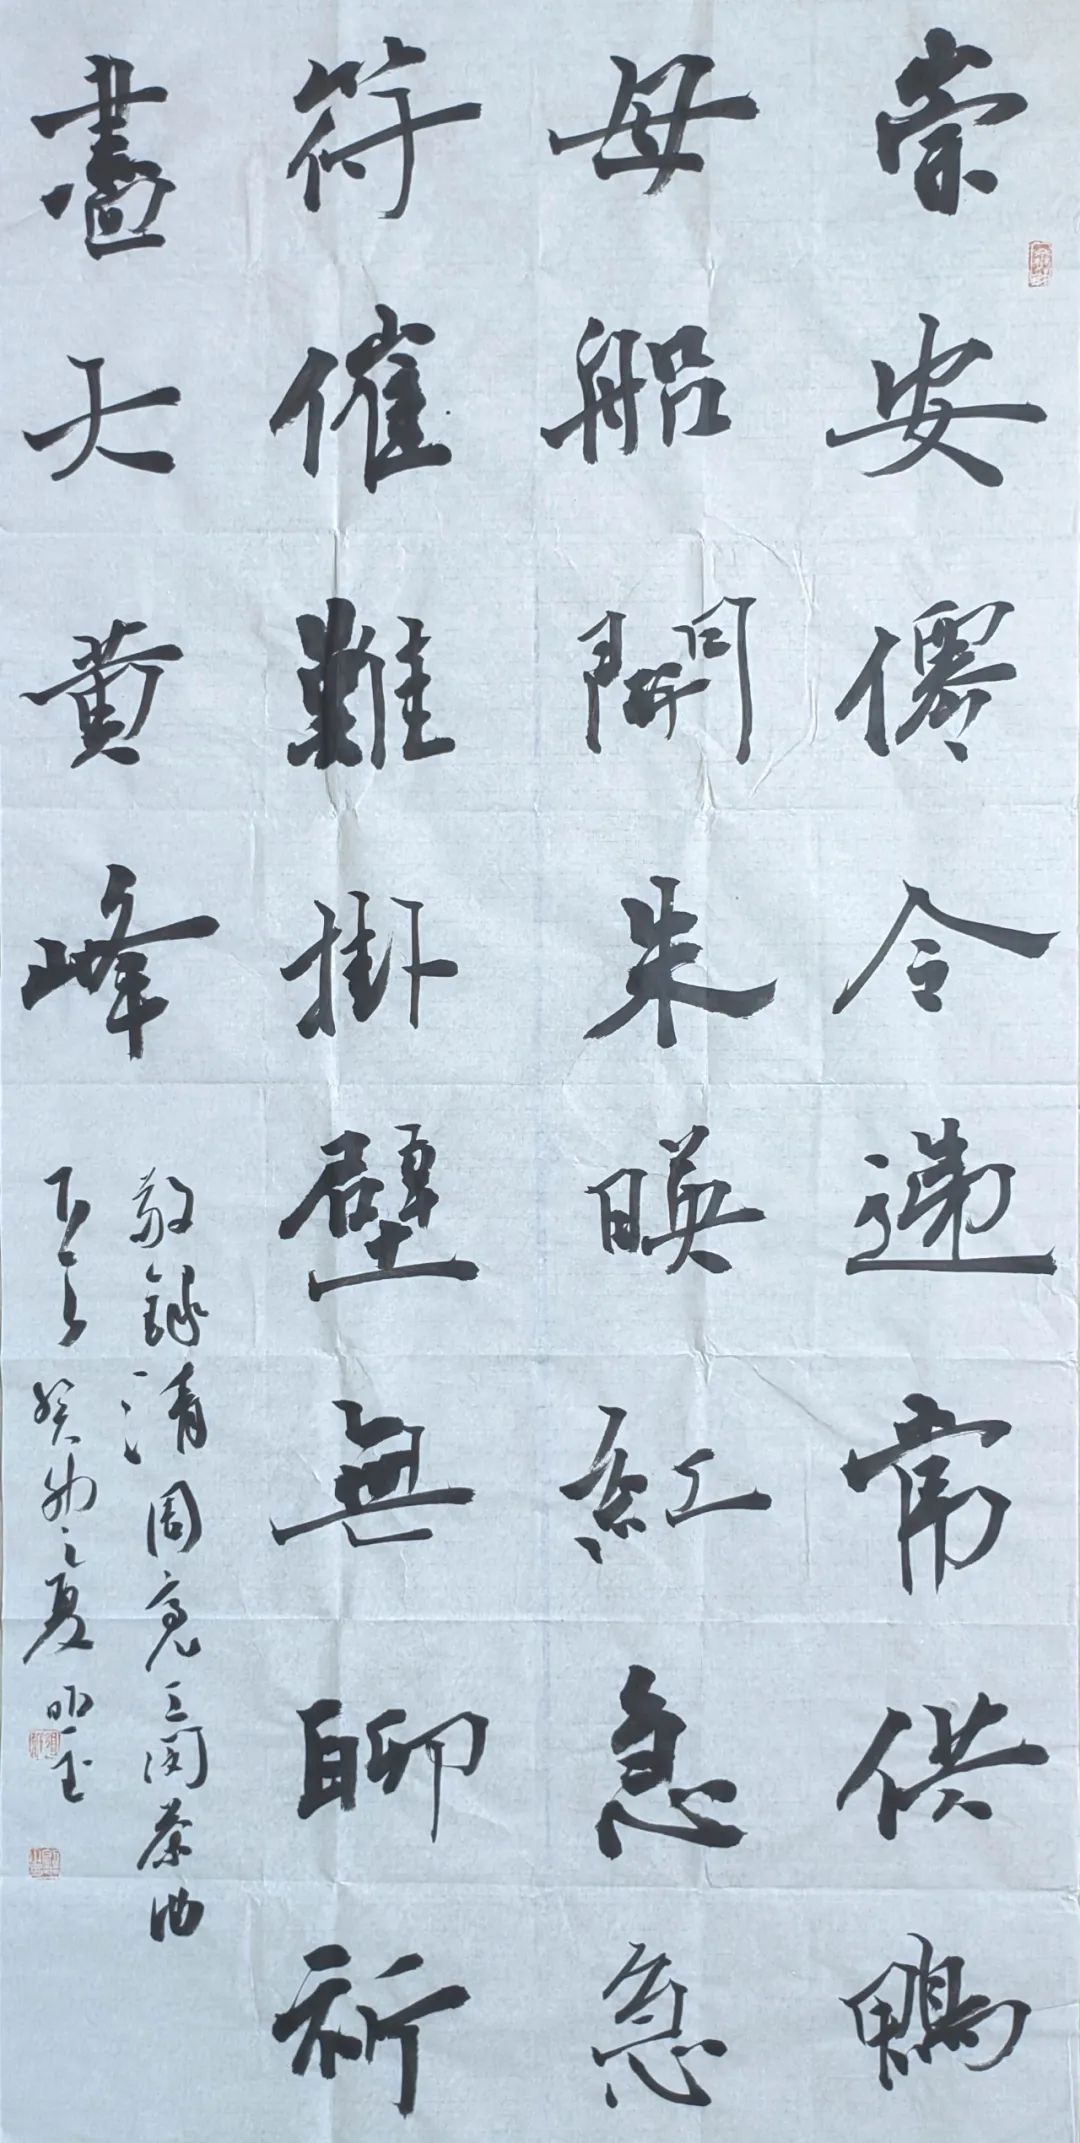 崇安僊令递常供鴨
母船開朱暎紅急急
符催難掛壁無聊斫
盡大黄峰
敬録清周亮工閩茶曲
一首癸卯之夏昭玉